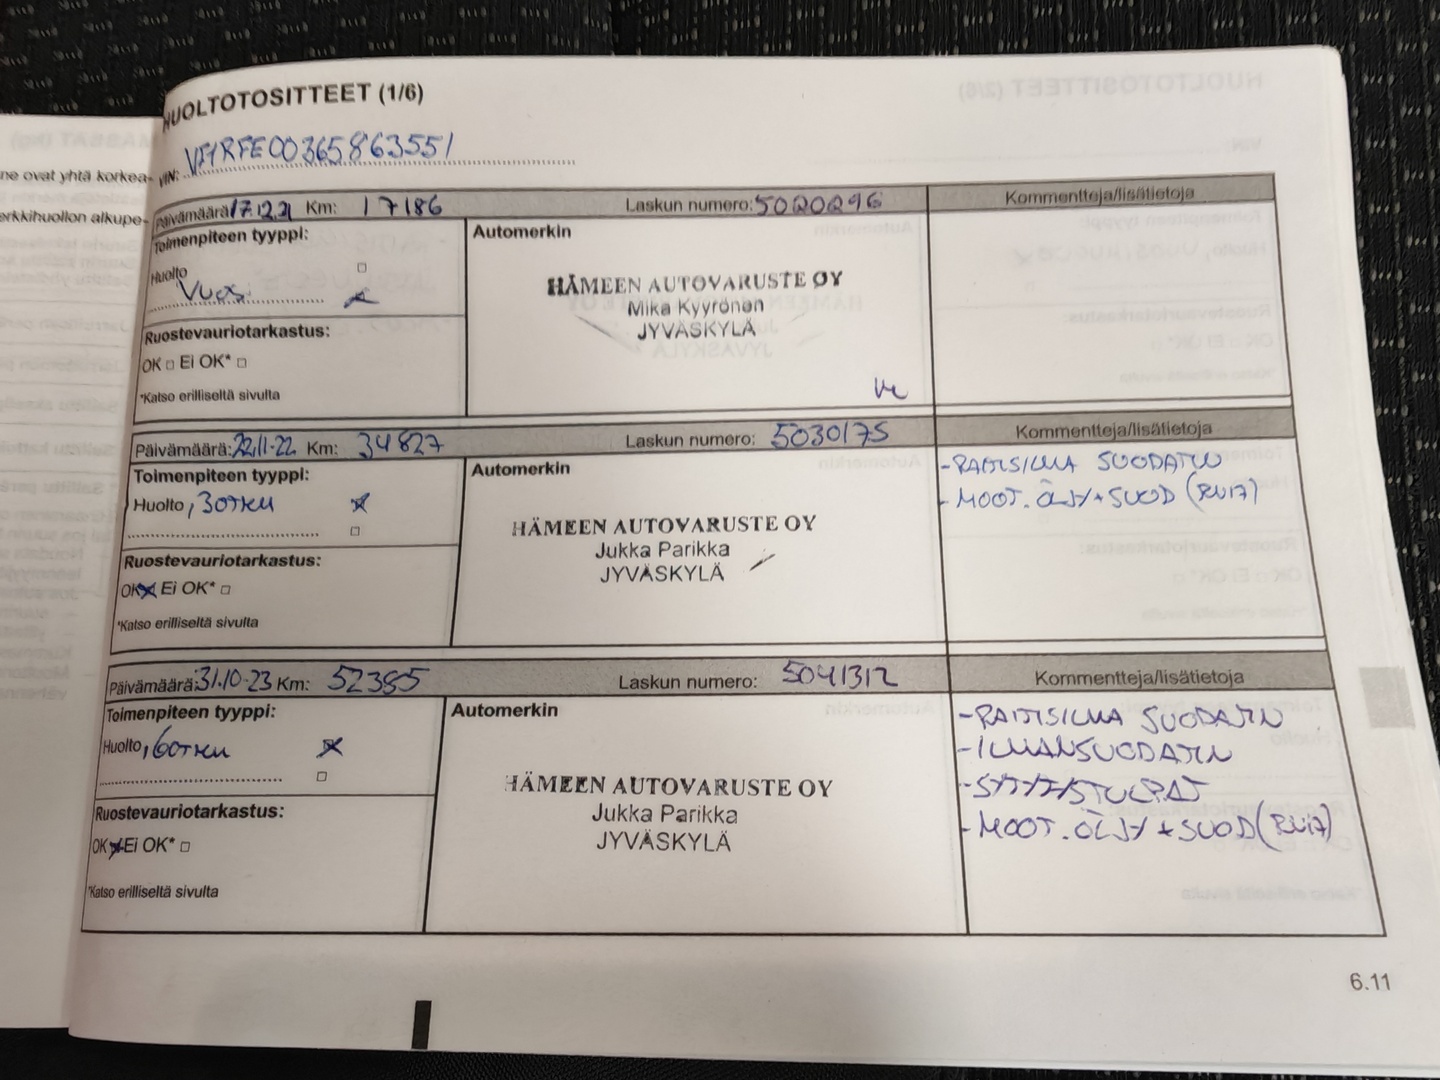 HUOLTOTOSITTEET (1/6)
VIN: VF1RFE00365863551
ne ovat yhtä korkea-
erkkihuollon alkupe-
Päivämäärä: 17.12.21 Km: 17186 Laskun numero: 5020296 Kommentteja/lisätietoja
Toimenpiteen tyyppi:
Automerkin
Huolto
Vuosi
HÄMEEN AUTOVARUSTE OY
Mika Kyyrönen
JYVÄSKYLÄ
Ruostevauriotarkastus:
OK □ Ei OK* □
*Katso erilliseltä sivulta
Päivämäärä: 22.11-22 Km: 34827 Laskun numero: 5030175 Kommentteja/lisätietoja
Toimenpiteen tyyppi:
Automerkin
Huolto, 30TKM
- RAITISILMA SUODATIN
- MOOT. ÖLJY + SUOD (RN17)
HÄMEEN AUTOVARUSTE OY
Jukka Parikka
JYVÄSKYLÄ
Ruostevauriotarkastus:
OK Ei OK* □
*Katso erilliseltä sivulta
Päivämäärä: 31.10-23 Km: 52385 Laskun numero: 5041312 Kommentteja/lisätietoja
Toimenpiteen tyyppi:
Automerkin
Huolto, 60TKM
- RAITISILMA SUODATIN
- ILMANSUODATIN
- SYTYTYSTULPAT
- MOOT. ÖLJY + SUOD (RN17)
HÄMEEN AUTOVARUSTE OY
Jukka Parikka
JYVÄSKYLÄ
Ruostevauriotarkastus:
OK Ei OK* □
*Katso erilliseltä sivulta
6.11